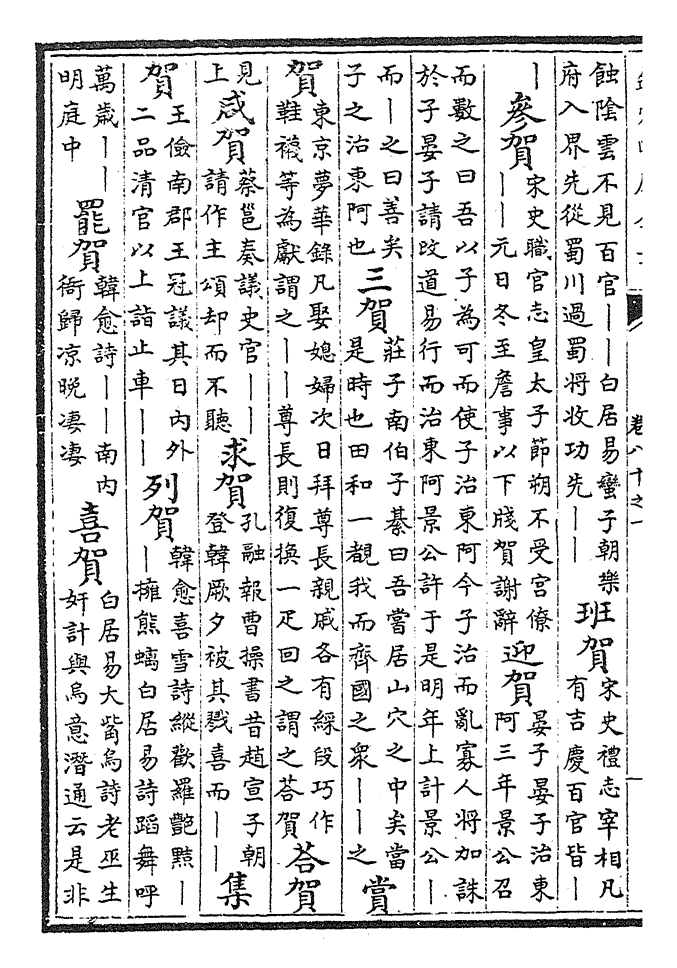 卷八十之一
蝕陰雲不見百官丨丨白居易蠻子朝樂
府入界先從蜀川過蜀將收功先丨丨
班賀
宋史禮志宰相凡
有吉慶百官皆丨
丨
參賀
宋史職官志皇太子節朔不受宮僚
丨丨元日冬至詹事以下牋賀謝辭
迎賀
晏子晏子治東
阿三年景公召
而數之曰吾以子為可而使子治東阿今子治而亂寡人將加誅
於子晏子請改道易行而治東阿景公許于是明年上計景公丨
而丨之曰善矣
子之治東阿也
三賀
莊子南伯子綦曰吾嘗居山穴之中矣當
是時也田和一覩我而齊國之衆丨丨之
賞
賀
東京夢華錄凡娶媳婦次日拜尊長親戚各有綵段巧作
鞋襪等為獻謂之丨丨尊長則復換一疋回之謂之荅賀
荅賀
見
上
咸賀
蔡邕奏議史官丨丨
請作主頌却而不聽
求賀
孔融報曹操書昔趙宣子朝
登韓厥夕被其戮喜而丨丨
集
賀
王儉南郡王冠議其日內外
二品清官以上詣止車丨丨
列賀
韓愈喜雪詩縱歡羅艷黠丨
丨擁熊螭白居易詩蹈舞呼
萬歲丨丨
明庭中
罷賀
韓愈詩丨丨南內
衙歸凉晚凄凄
喜賀
白居易大觜烏詩老巫生
奸計與烏意潛通云是非